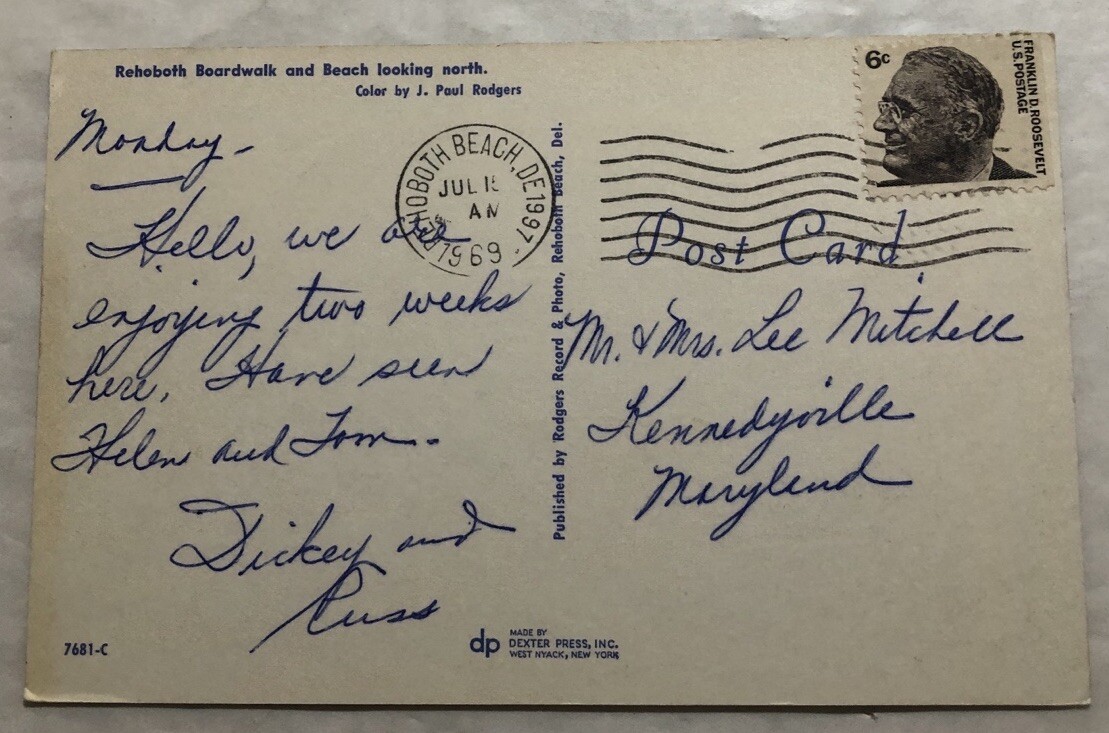 Rehoboth Boardwalk and Beach looking north.
Color by J. Paul Rodgers
Monday -
Hello, we are
enjoying two weeks
here. Have seen
Helen and Tom.
Dickey and
Russ
7681-C
dp
MADE BY
DEXTER PRESS, INC.
WEST NYACK, NEW YORK
Published by Rodgers Record & Photo, Rehoboth Beach, Del.
REHOBOTH BEACH, DE 1997
JUL
AM
1969
6c
FRANKLIN D. ROOSEVELT
U.S. POSTAGE
Post Card
Mr. & Mrs. Lee Mitchell
Kennedyville
Maryland